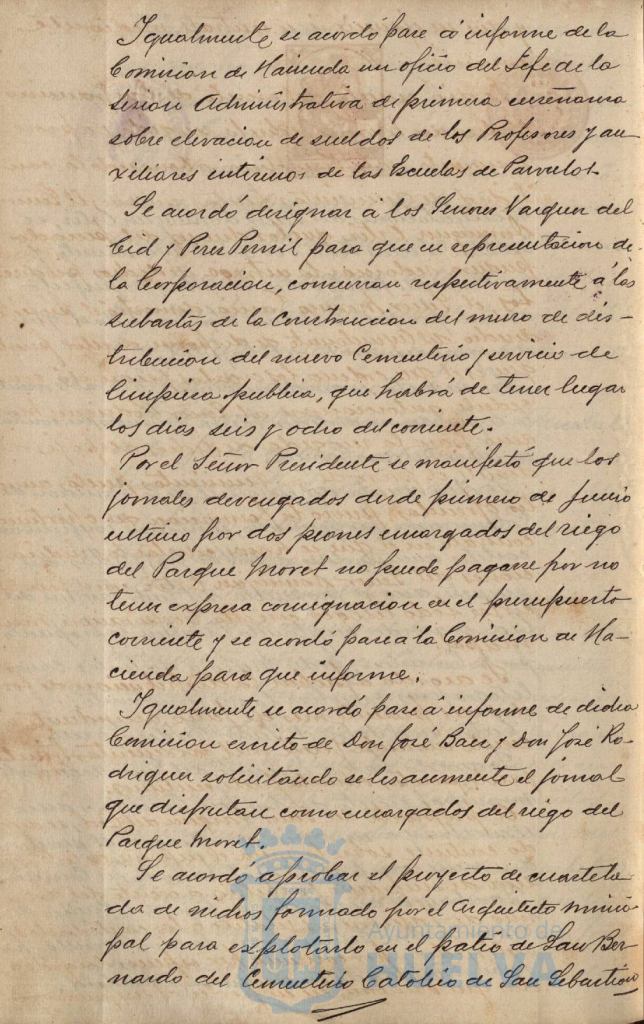 Igualmente se acordó pase á informe de la
Comision de Hacienda un oficio del Jefe de la
Sesion Administrativa de primera enseñanza
sobre elevacion de sueldos de los Profesores y au-
xiliares interinos de las Escuelas de Parvulos.
Se acordó designar á los Señores Vazquez del
Cid y Perez Pernil para que en representacion de
la Corporacion, concurran respectivamente á las
subastas de la Construccion del muro de dis-
tribucion del nuevo Cementerio y servicio de
limpiesa publica, que habrá de tener lugar
los dias seis y ocho del corriente.
Por el Señor Presidente se manifestó que los
jornales devengados desde primero de Junio
ultimo por dos peones encargados del riego
del Parque Moret no puede pagarse por no
tener expresa consignacion en el presupuesto
corriente y se acordó pase a la Comision de Ha-
cienda para que informe.
Igualmente se acordó pase á informe de dicha
Comision escrito de Don José Baez y Don José Ro-
driguez solicitando se les aumente el jornal
que disfrutan como encargados del riego del
Parque Moret.
Se acordó aprobar el proyecto de cuartela-
da de nichos formado por el Arquitecto munici-
pal para explotarlo en el patio de San Ber-
nardo del Cementerio Catolico de San Sebastián
Ayuntamiento de
HUELVA